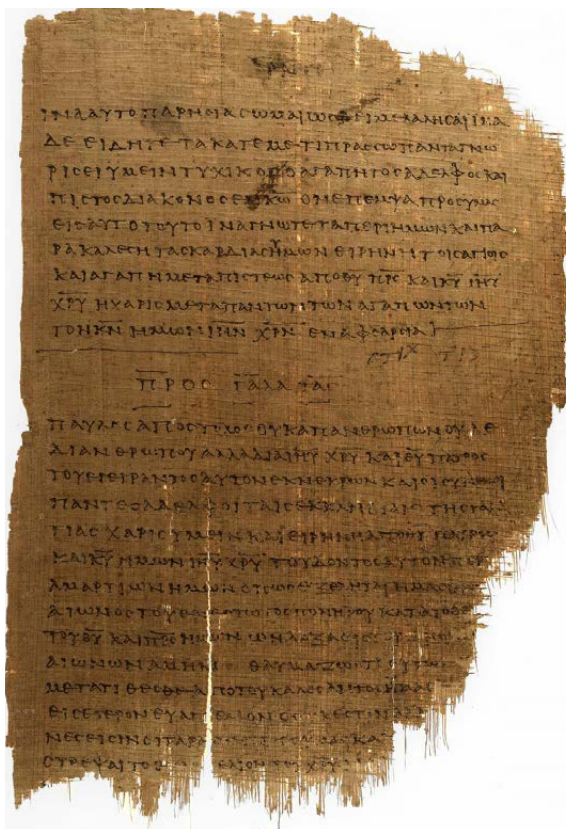 ΙΝΑΑΥΤΟΠΑΡΗϹΙΑϹΩΜΑΙΩϹΔΕΙΜΕΛΑΛΗϹΑΙΙΝΑ
ΔΕΕΙΔΗΤΕΤΑΚΑΤΕΜΕΤΙΠΡΑϹϹΩΠΑΝΤΑΓΝΩ
ΡΙϹΕΙΥΜΕΙΝΤΥΧΙΚΟϹΟΑΓΑΠΗΤΟϹΑΔΕΛΦΟϹΚΑΙ
ΠΙϹΤΟϹΔΙΑΚΟΝΟϹΕΝΚ̅Ω̅ΟΝΕΠΕΜΨΑΠΡΟϹΥΜΑϹ
ΕΙϹΑΥΤΟΤΟΥΤΟΙΝΑΓΝΩΤΕΤΑΠΕΡΙΗΜΩΝΚΑΙΠΑ
ΡΑΚΑΛΕϹΗΤΑϹΚΑΡΔΙΑϹΥΜΩΝΕΙΡΗΝΗΤΟΙϹΑΓΙΟΙϹ
ΚΑΙΑΓΑΠΗΜΕΤΑΠΙϹΤΕΩϹΑΠΟΘ̅Υ̅Π̅Ρ̅Ϲ̅ΚΑΙΚ̅Υ̅Ι̅Η̅Υ̅
Χ̅Ρ̅Υ̅ΗΧΑΡΙϹΜΕΤΑΠΑΝΤΩΝΤΩΝΑΓΑΠΩΝΤΩΝ
ΤΟΝΚ̅Ν̅ΗΜΩΝΙ̅Η̅Ν̅Χ̅Ρ̅Ν̅ΕΝΑΦΘΑΡϹΙΑ
ϹΤΙΧ ΤΙϚ
ΠΡΟϹ ΓΑΛΑΤΑϹ
ΠΑΥΛΟϹΑΠΟϹΤΟΛΟϹΟΥΚΑΠΑΝΘΡΩΠΩΝΟΥΔΕ
ΔΙΑΝΘΡΩΠΟΥΑΛΛΑΔΙΑΙ̅Η̅Υ̅Χ̅Ρ̅Υ̅ΚΑΙΘ̅Υ̅ΠΑΤΡΟϹ
ΤΟΥΕΓΕΙΡΑΝΤΟϹΑΥΤΟΝΕΚΝΕΚΡΩΝΚΑΙΟΙϹΥΝΕΜΟΙ
ΠΑΝΤΕϹΑΔΕΛΦΟΙΤΑΙϹΕΚΚΛΗϹΙΑΙϹΤΗϹΓΑΛΑ
ΤΙΑϹΧΑΡΙϹΥΜΕΙΝΚΑΙΕΙΡΗΝΗΑΠΟΘ̅Υ̅ΠΑΤΡΟϹ
ΚΑΙΚ̅Υ̅ΗΜΩΝΙ̅Η̅Υ̅Χ̅Ρ̅Υ̅ΤΟΥΔΟΝΤΟϹΑΥΤΟΝΠΕΡΙ
ΑΜΑΡΤΙΩΝΗΜΩΝΟΠΩϹΕΞΕΛΗΤΑΙΗΜΑϹ
ΑΙΩΝΟϹΤΟΥΕΝΕϹΤΩΤΟϹΠΟΝΗΡΟΥΚΑΤΑΤΟΘΕ
ΤΟΥΘ̅Υ̅ΚΑΙΠ̅Ρ̅Ϲ̅ΗΜΩΝΩΗΔΟΞΑΕΙϹΤΟΥϹ
ΑΙΩΝΩΝΑΜΗΝ ΘΑΥΜΑΖΩΟΤΙΟΥΤΩ
ΜΕΤΑΤΙΘΕϹΘΕΑΠΟΤΟΥΚΑΛΕϹΑΝΤΟϹΥΜΑϹ
ΕΙϹΕΤΕΡΟΝΕΥΑΓΓΕΛΙΟΝΟΟΥΚΕϹΤΙΝΑΛΛ
ΝΕϹΕΙϹΙΝΟΙΤΑΡΑϹϹΟΝΤΕϹΥΜΑϹΚΑΙ
ϹΤΡΕΨΑΙΤΟΕΥΑΓΓΕΛΙΟΝΤΟΥΧ̅Ρ̅Υ̅